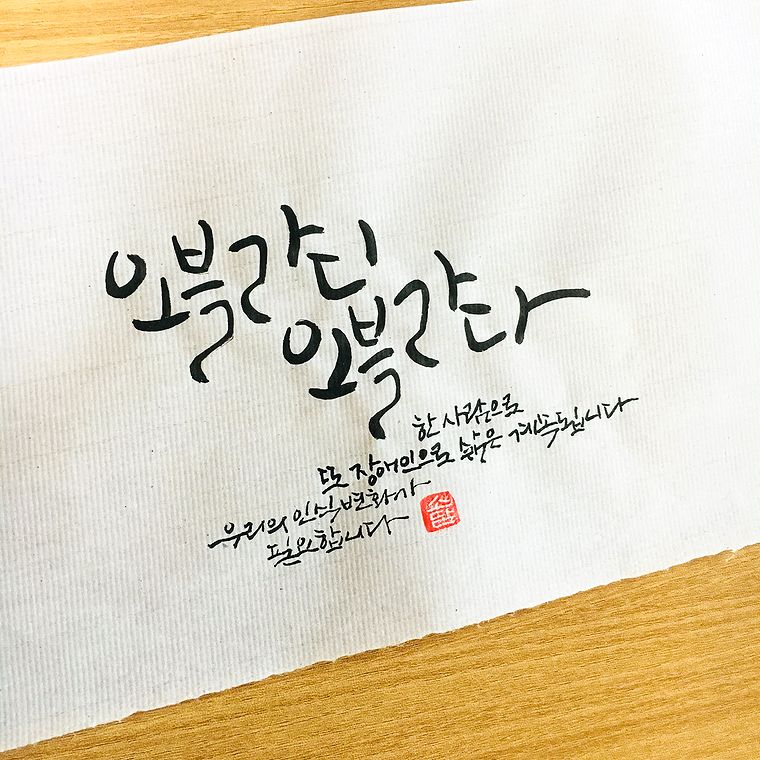 오블라디
오블라다
한 사람으로
또 장애인으로 삶은 계속됩니다
우리의 인식변화가
필요합니다